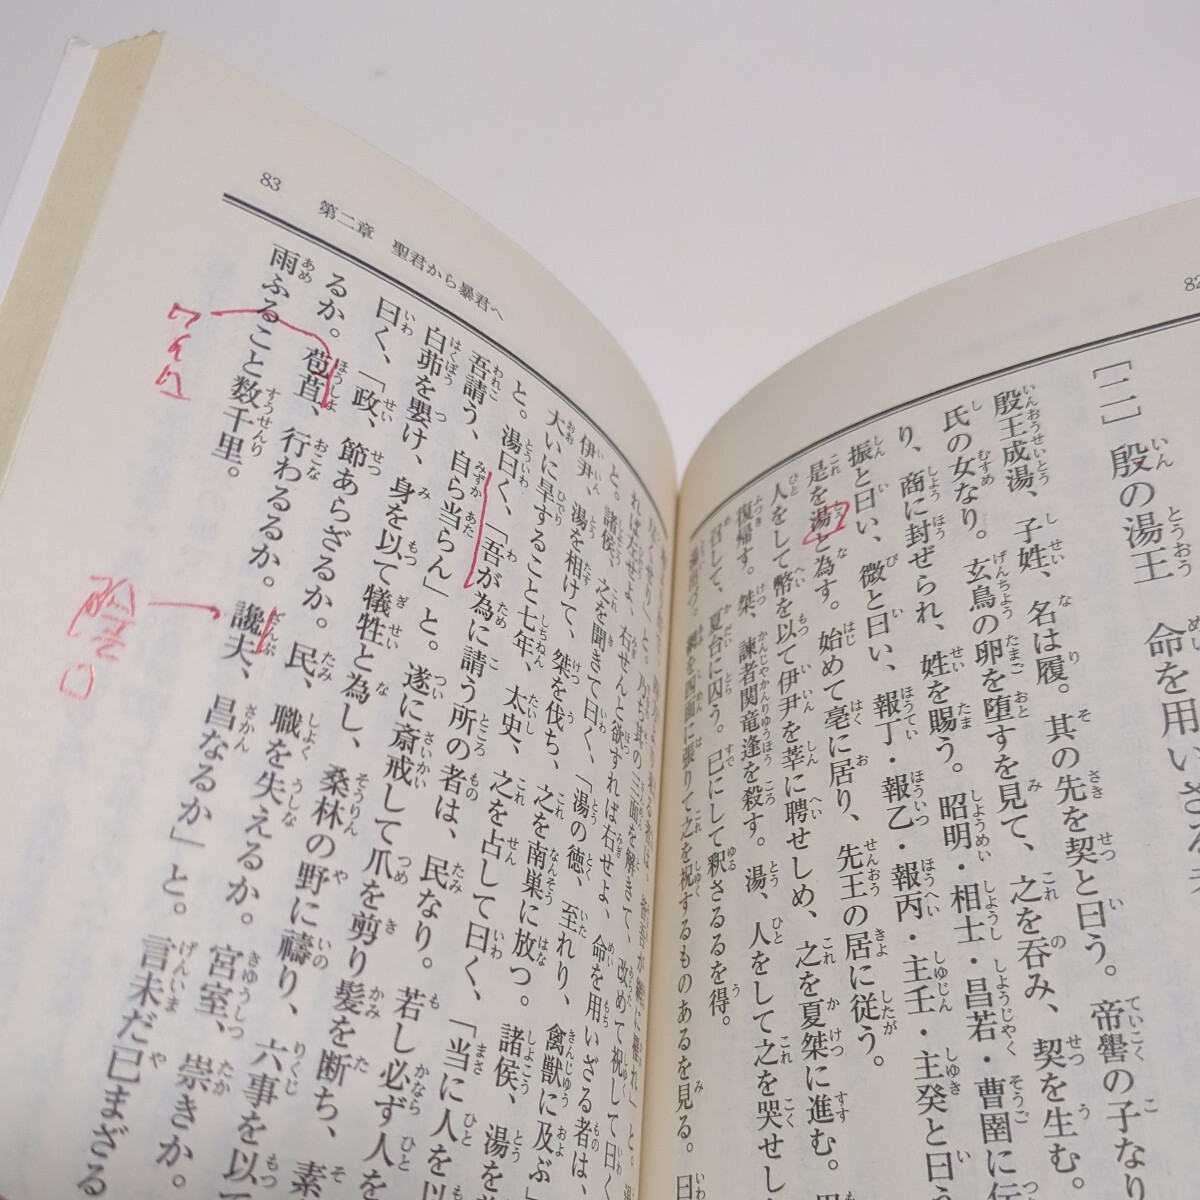 82
[二] 殷の湯王 命を用いざる者
殷王成湯、子姓、名は履。其の先を契と曰う。帝嚳の子なり
氏の女なり。玄鳥の卵を堕すを見て、之を呑み、契を生む。
り、商に封ぜられ、姓を賜う。昭明・相士・昌若・曹圉に伝
振と曰い、微と曰い、報丁・報乙・報丙・主壬・主癸と曰う
是を湯と為す。始めて亳に居り、先王の居に従う。
人をして幣を以て伊尹を莘に聘せしめ、之を夏桀に進む。
復帰す。桀、諫者関竜逢を殺す。湯、人をして之を哭せし
召して、夏台に囚う。已にして釈さるるを得。
湯出づ。網を四面に張りて之を祝するものあるを見る。曰
83 第二章 聖君から暴君へ
と。乃ち其の三面を解きて、改めて祝して曰く
れば左せよ、右せんと欲すれば右せよ、命を用いざる者は、
と。諸侯、之を聞きて曰く、「湯の徳、至れり、禽獣に及ぶ」
伊尹、湯を相けて、桀を伐ち、之を南巣に放つ。諸侯、湯を
大いに旱すること七年、太史、之を占して曰く、「当に人を以
と。湯曰く、「吾が為に請う所の者は、民なり。若し必ず人を
吾請う、自ら当らん」と。遂に斎戒して爪を剪り髪を断ち、素
白茆を嬰け、身を以て犠牲と為し、桑林の野に禱り、六事を以
曰く、「政、節あらざるか。民、職を失えるか。宮室、崇きか。
るか。苞苴、行わるるか。讒夫、昌なるか」と。言未だ已まざる
雨ふること数千里。
ワイロ